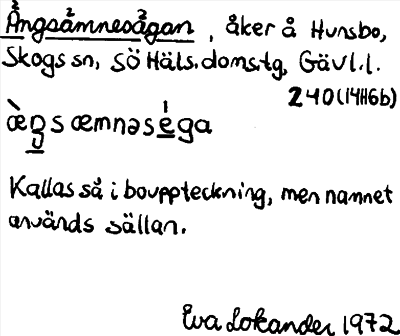 Ängsämnesägan, åker å Hunsbo,
Skogs sn, SöHäls.domstg, Gävl.l.
240(14H6b)
æ̀g̲sæmnəsé̲ga
Kallas så i bouppteckning, men namnet
används sällan.
Eva Lokander 1972